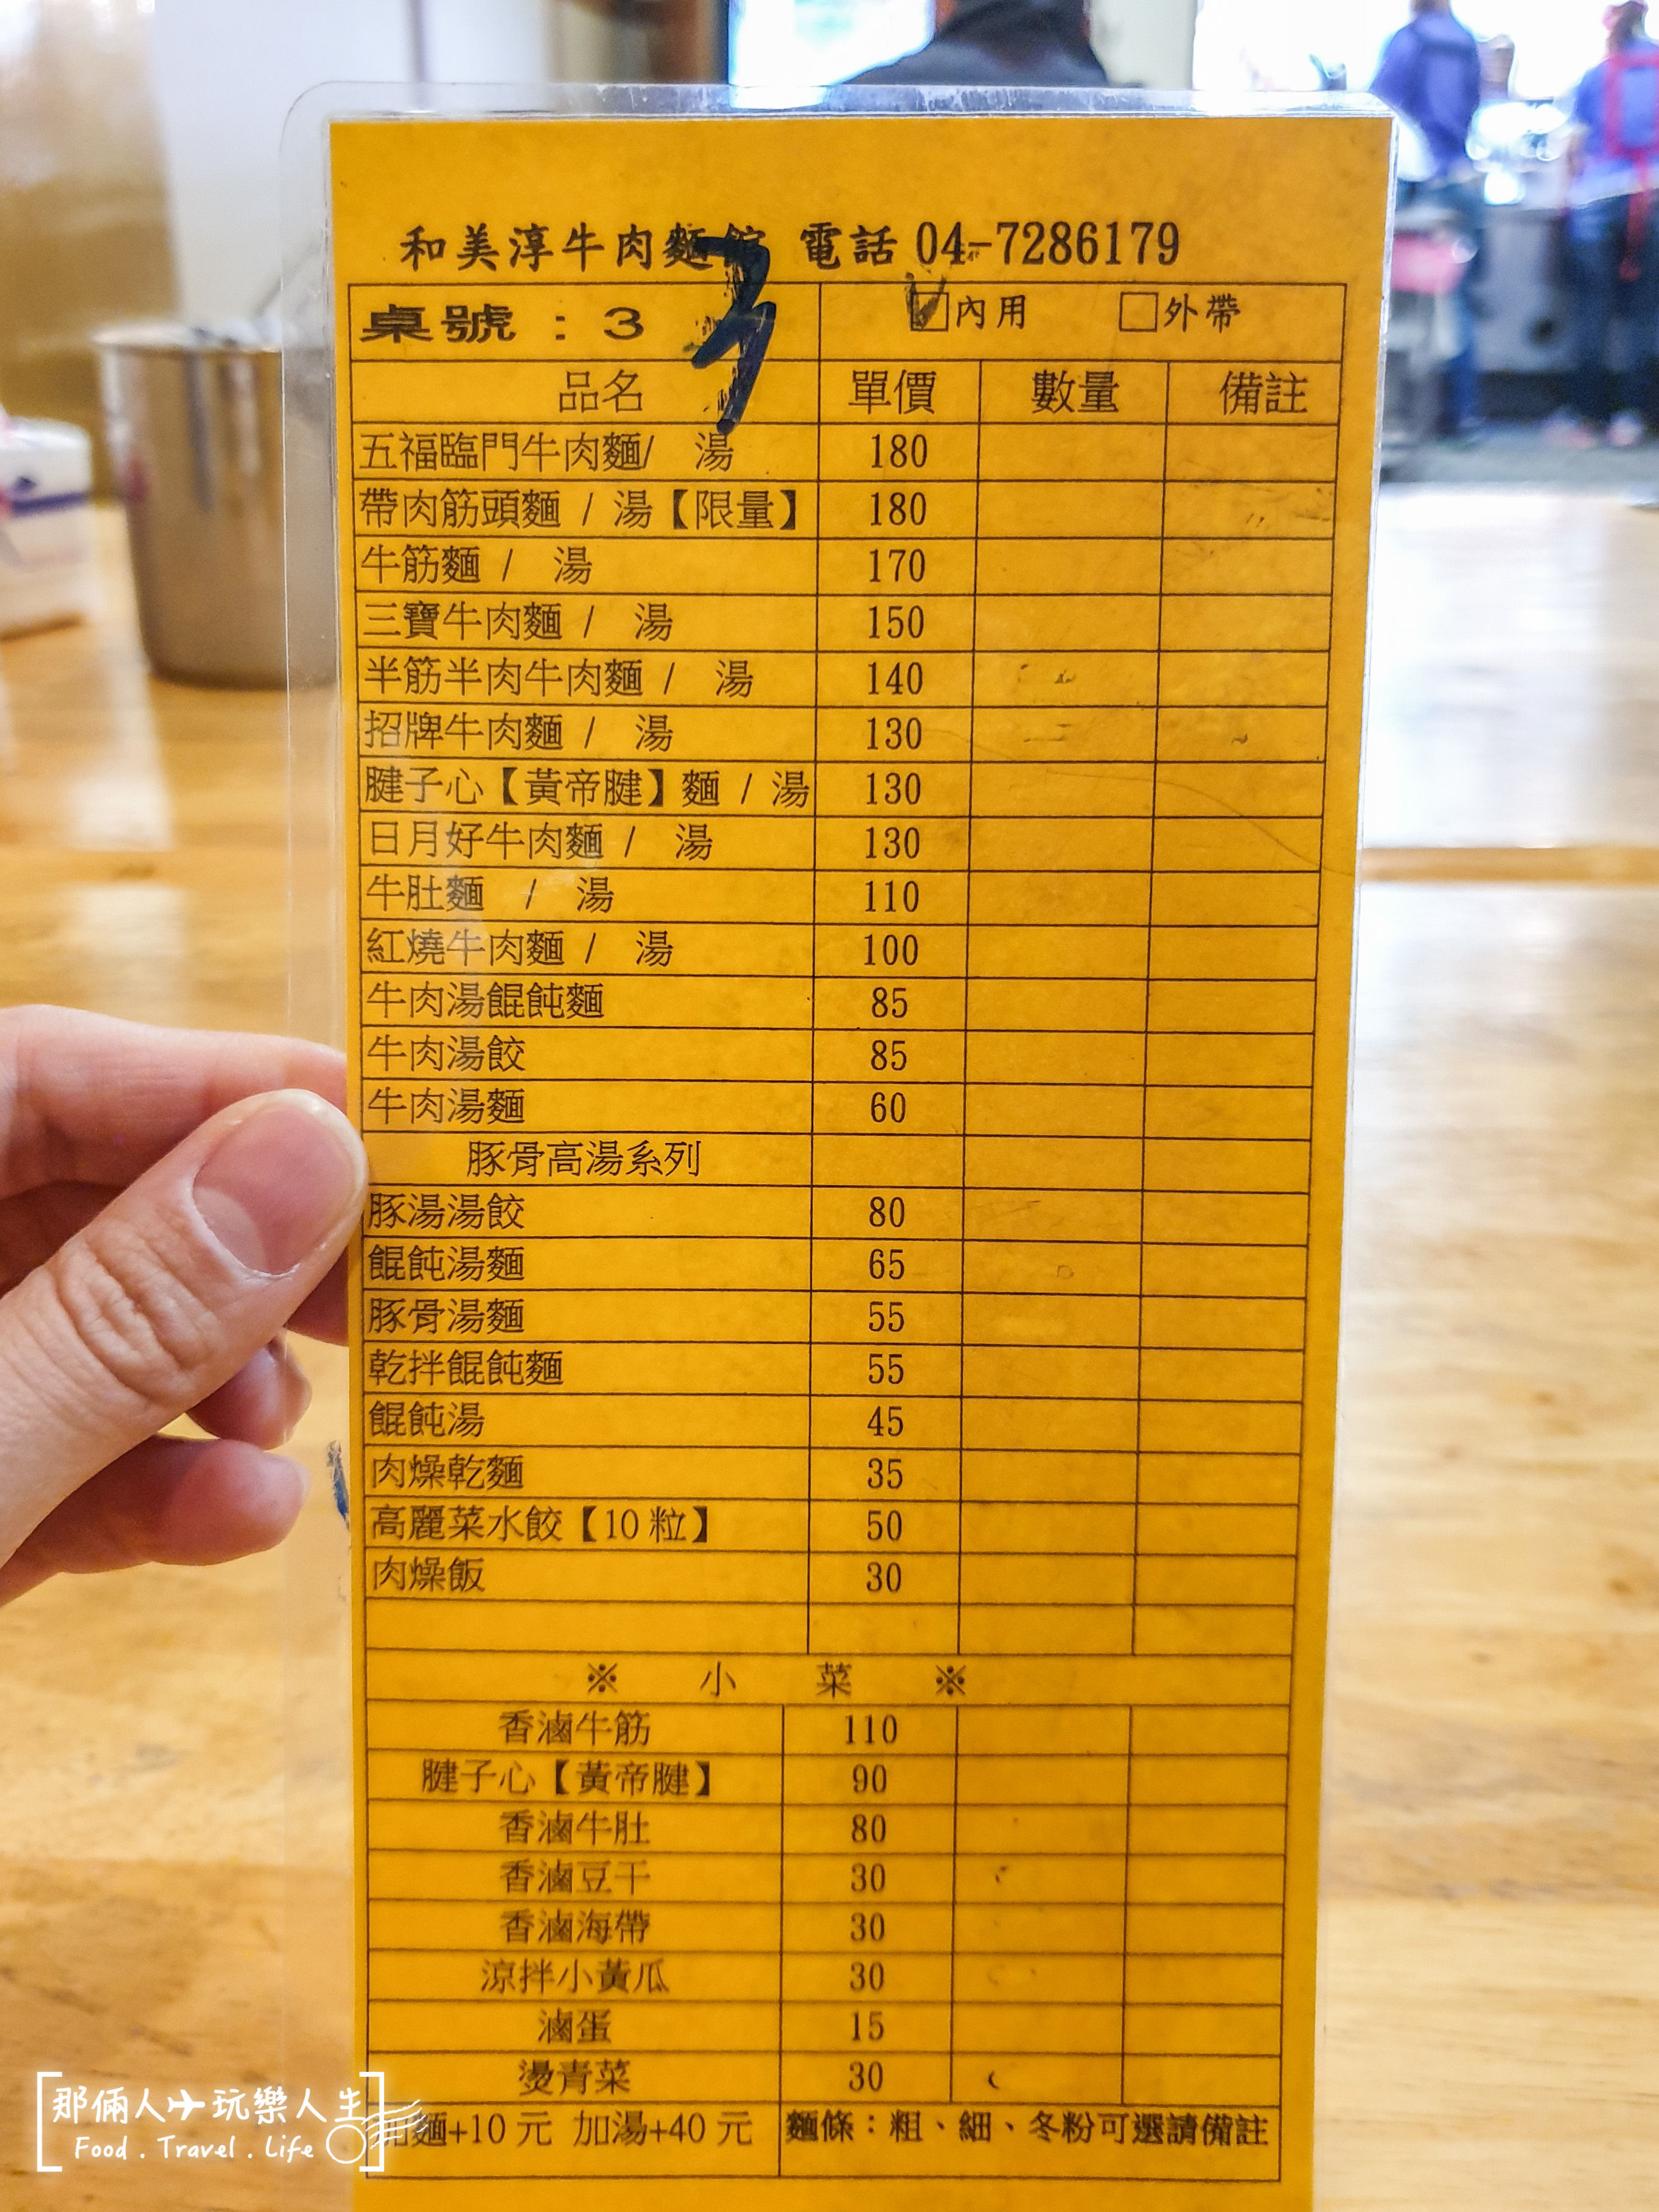 和美淳牛肉麵館 電話 04-7286179
桌號：3 3 ☑內用 □外帶
品名 單價 數量 備註
五福臨門牛肉麵/ 湯 180
帶肉筋頭麵 / 湯【限量】 180
牛筋麵 / 湯 170
三寶牛肉麵 / 湯 150
半筋半肉牛肉麵 / 湯 140
招牌牛肉麵 / 湯 130
腱子心【黃帝腱】麵 / 湯 130
日月好牛肉麵 / 湯 130
牛肚麵 / 湯 110
紅燒牛肉麵 / 湯 100
牛肉湯餛飩麵 85
牛肉湯餃 85
牛肉湯麵 60
豚骨高湯系列
豚湯湯餃 80
餛飩湯麵 65
豚骨湯麵 55
乾拌餛飩麵 55
餛飩湯 45
肉燥乾麵 35
高麗菜水餃【10粒】 50
肉燥飯 30
※ 小 菜 ※
香滷牛筋 110
腱子心【黃帝腱】 90
香滷牛肚 80
香滷豆干 30
香滷海帶 30
涼拌小黃瓜 30
滷蛋 15
燙青菜 30
加麵+10元 加湯+40元 麵條：粗、細、冬粉可選請備註
那倆人✈玩樂人生
Food . Travel . Life